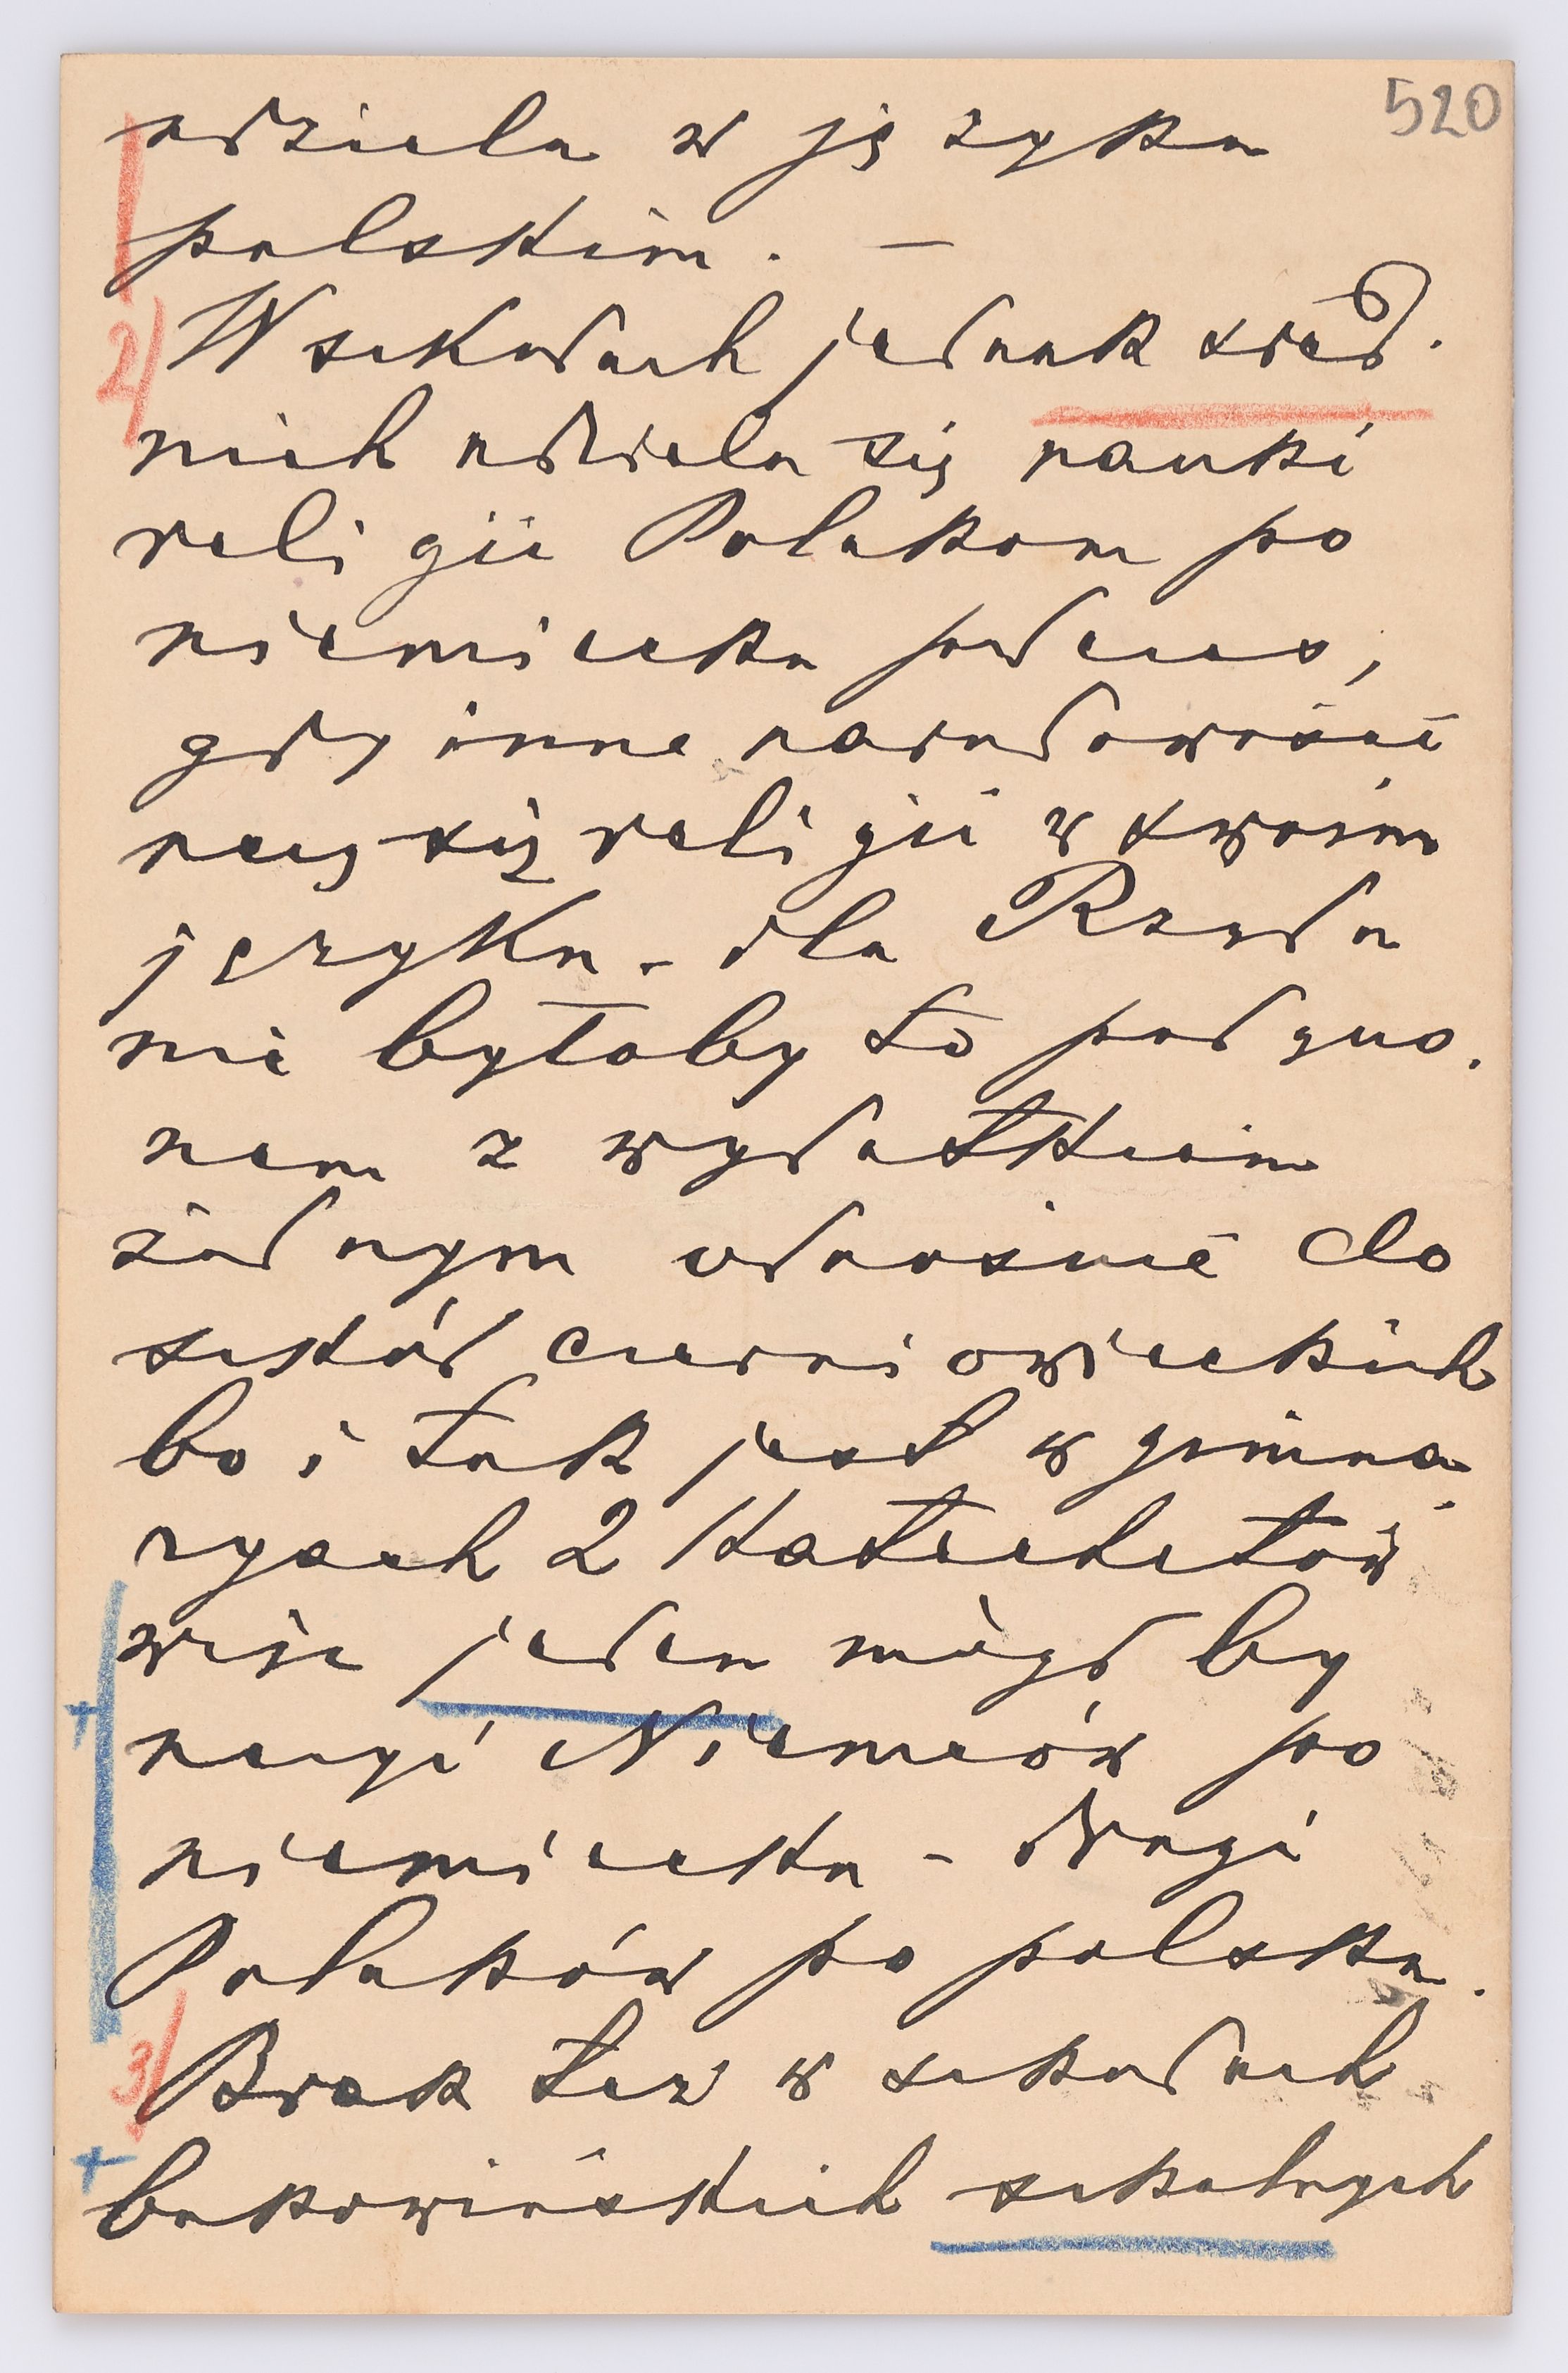 520
udziela w języku
polskim. —
2/ W szkołach jednak śred-
nich udziela się nauki
religii Polakom po
niemiecku podczas,
gdy inne narodowości
uczą się religii w swoim
języku - dla Rządu
nie byłoby to połączo-
nem z wydatkiem
żadnym odnośnie do
szkół czerniowieckich
bo i tak jest w gimna-
zyach 2 Katechetów
więc jeden mógł by
uczyć Niemców po
niemiecku - drugi
Polaków po polsku.
3/ Brak też w szkołach
bukowińskich szkolnych